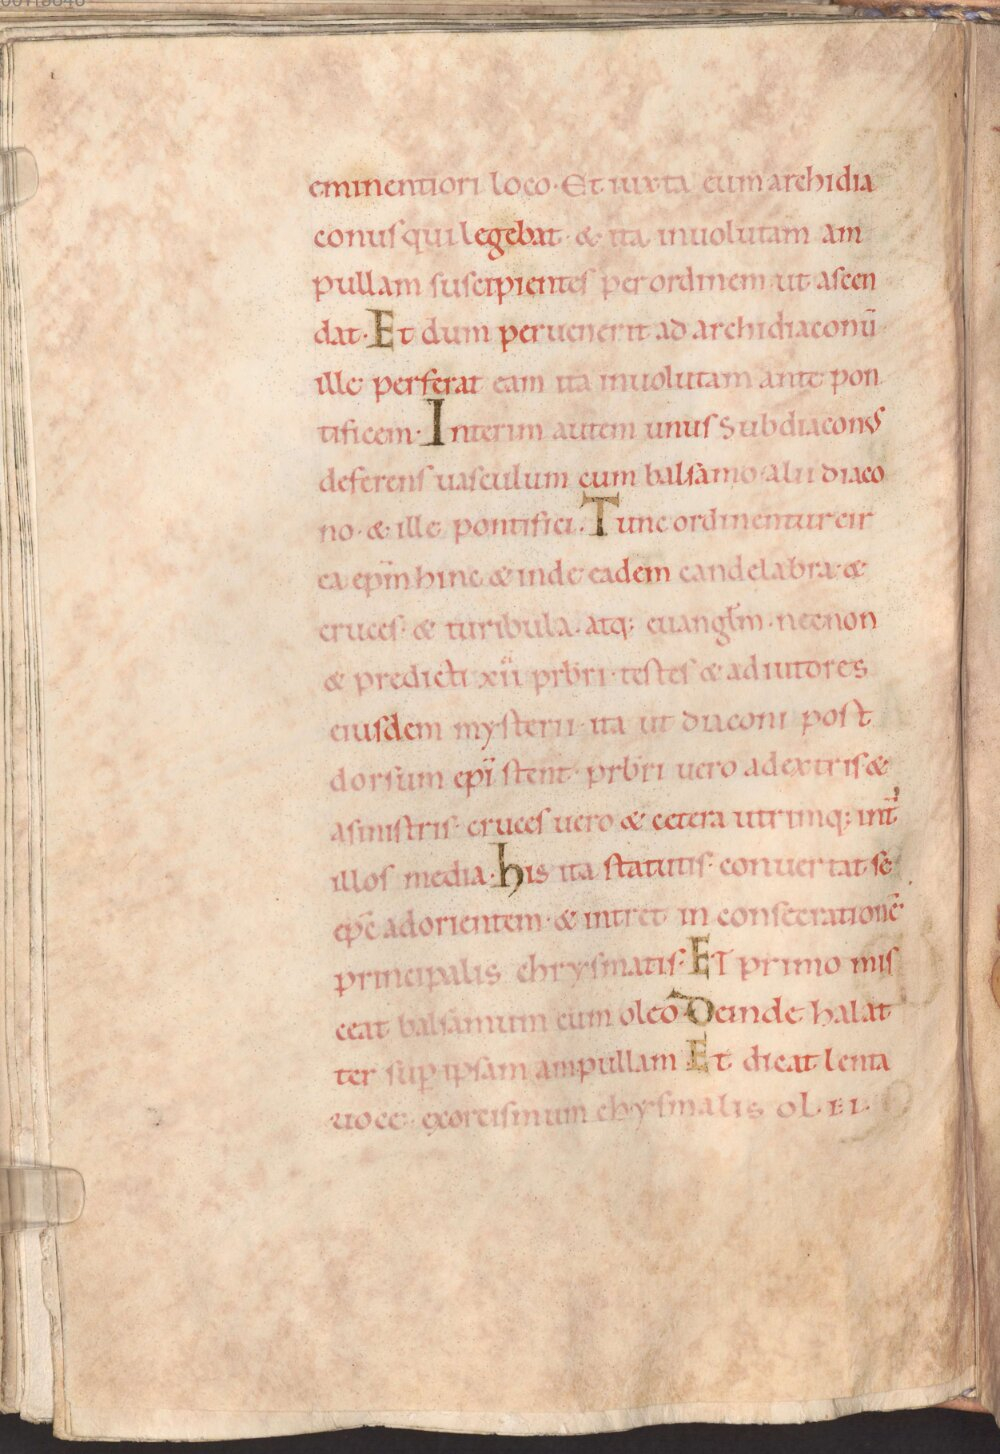 eminentiori loco· Et iuxta eum archidia
conus qui legebat· & ita inuolutam am
pullam suscipientes per ordinem ut ascen
dat· Et dum peruenerit ad archidiaconū
ille perferat eam ita inuolutam ante pon
tificem· Interim autem unus Subdiacons
deferens uasculum cum balsamo alii diaco
no· & ille pontifici. Tunc ordinentur cir
ca epm̄ hinc & inde eadem candelabra· &
cruces· & turibula. atq; euanglm̄· necnon
& predicti xii prb̄ri· testes & adiutores
eiusdem mysterii· ita ut diaconi post
dorsum epī stent· prb̄ri uero adextris &
asinistris· cruces uero & cetera utrimq; int̄
illos media· his ita statutis· conuertat se
epc̄ ad orientem· & intret in consecrationē
principalis chrysmatis· ET primo mis
ceat balsamum cum oleo Deinde halat
ter sup̱ ipsam ampullam Et dicat lenta
uoce· exorcismum chrysmalis OLEI·